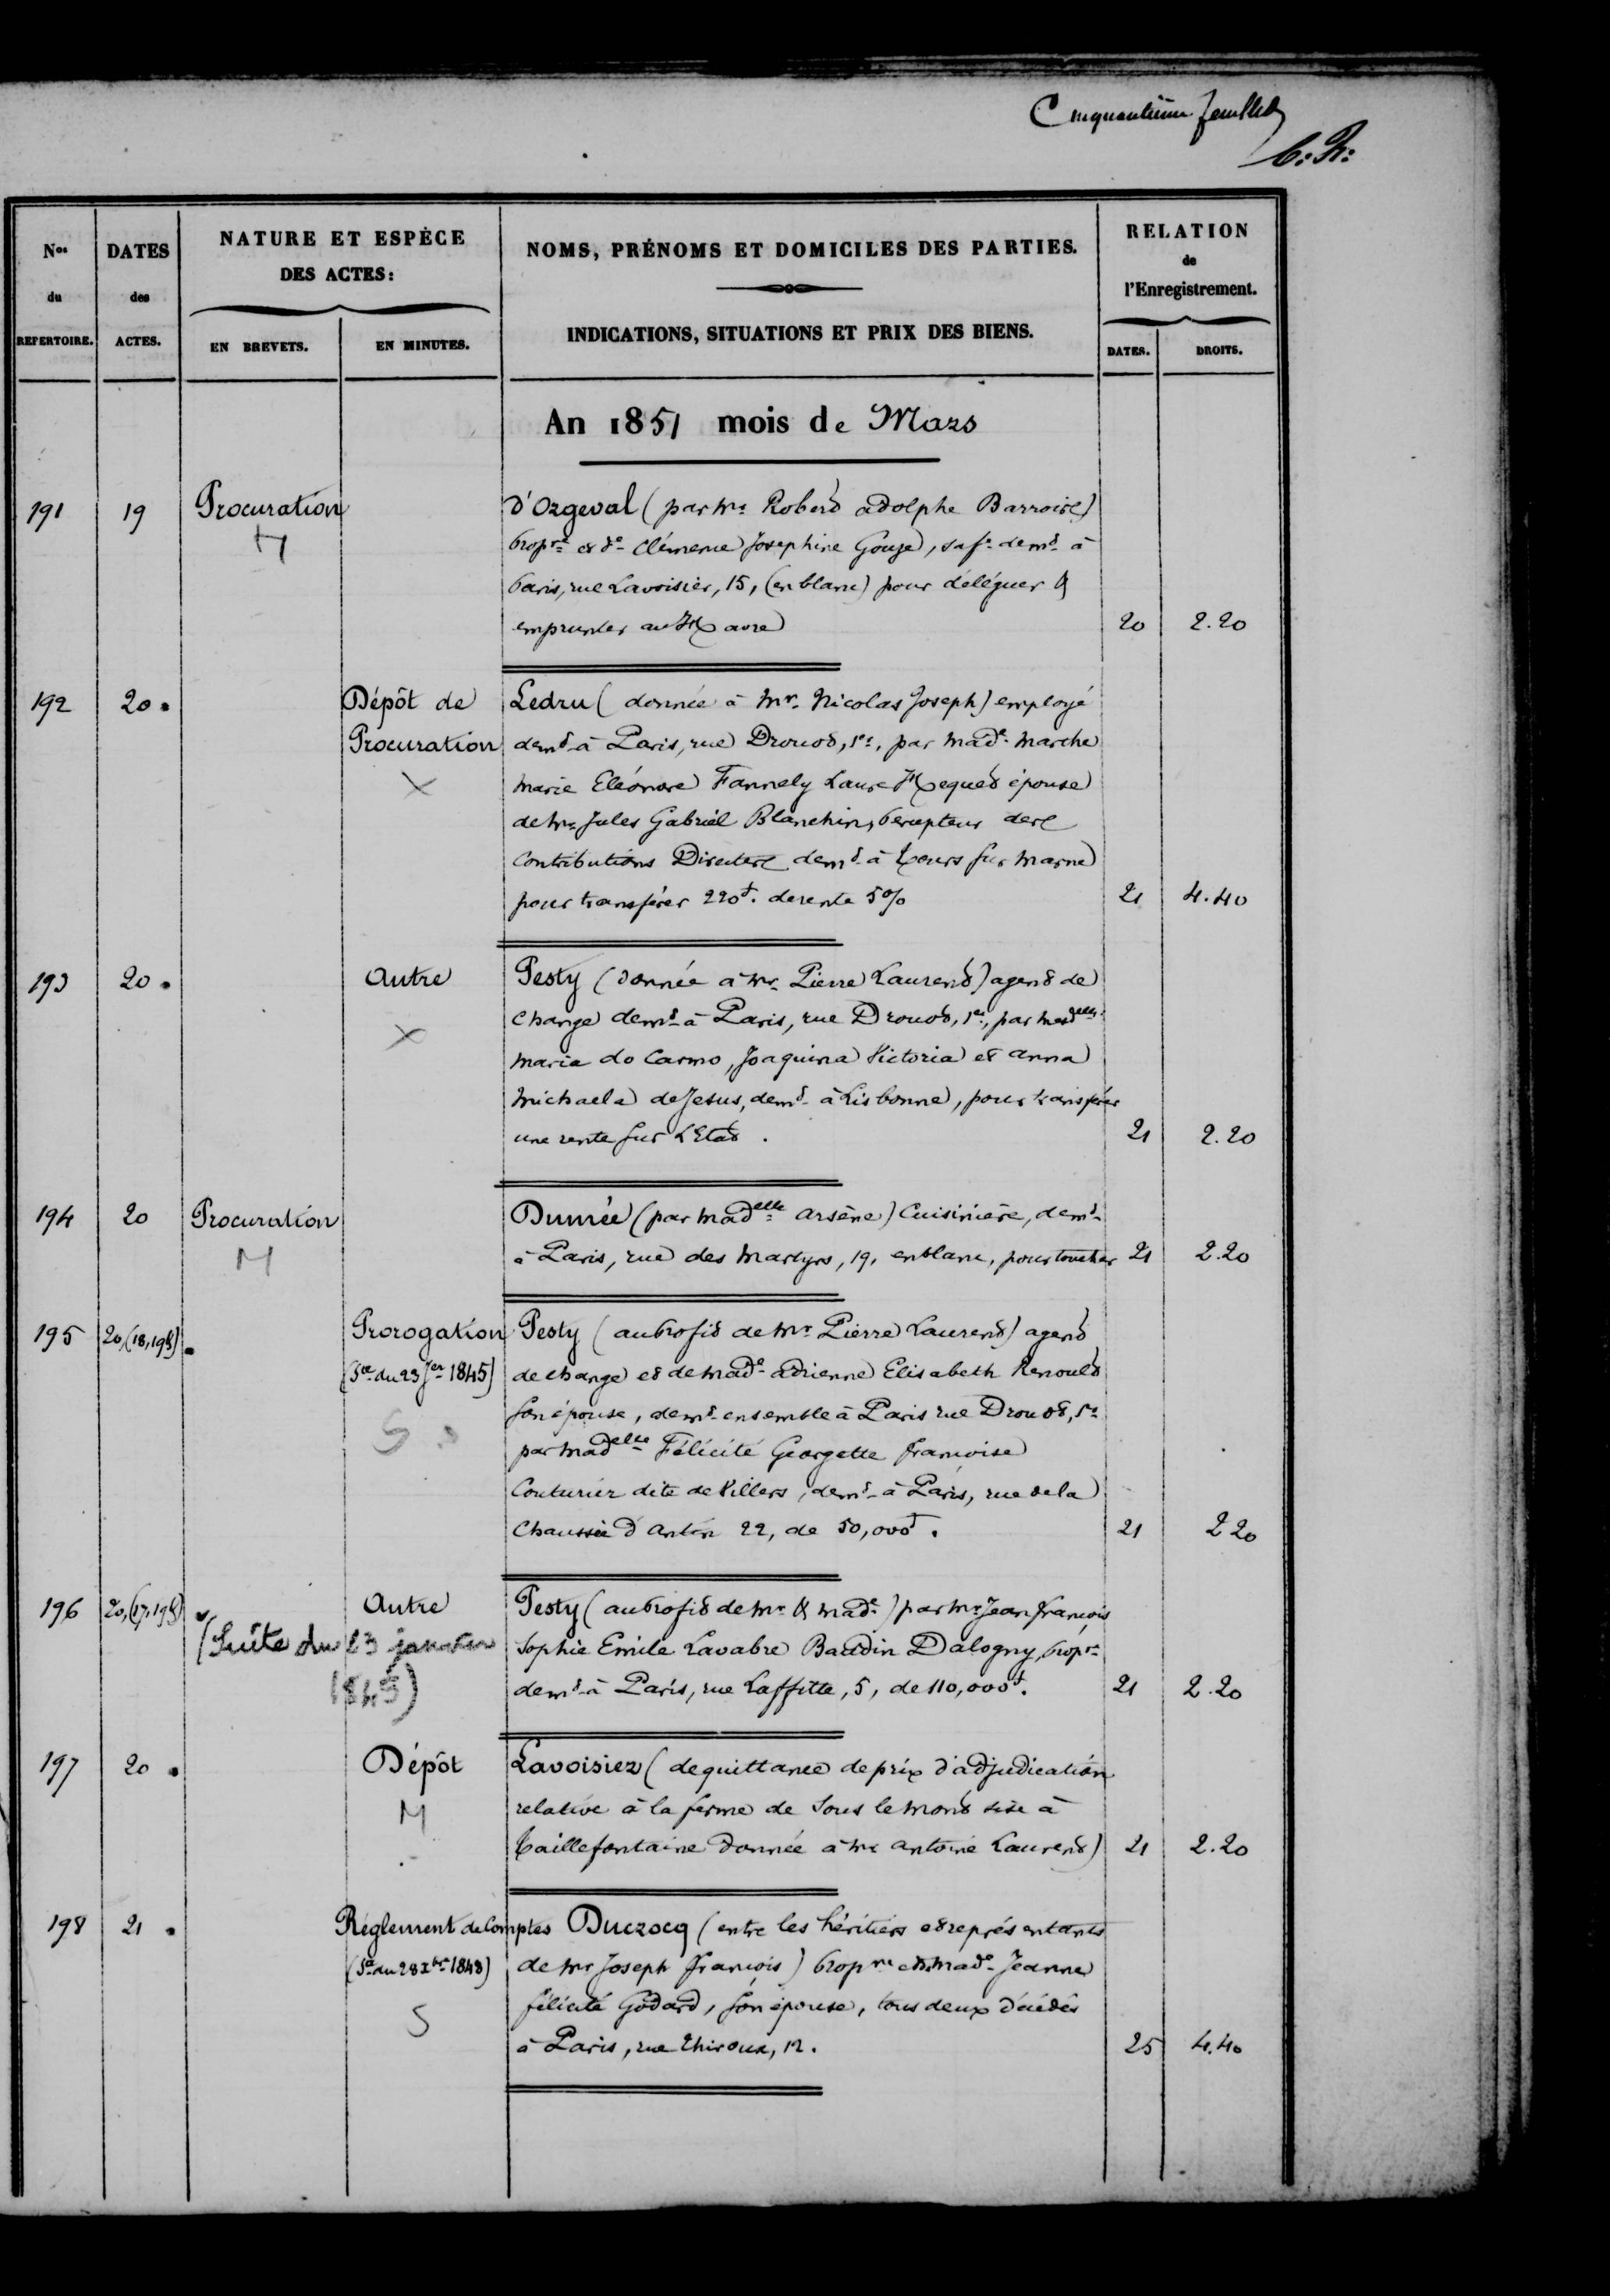 Cinquantième feuillet
C. R.
Nos du REPERTOIRE.
DATES des ACTES.
NATURE ET ESPÈCE DES ACTES:
EN BREVETS.
EN MINUTES.
NOMS, PRÉNOMS ET DOMICILES DES PARTIES.
INDICATIONS, SITUATIONS ET PRIX DES BIENS.
RELATION de l'Enregistrement.
DATES.
DROITS.
An 1851 mois de Mars
191 19 Procuration d'Orgeval (par Mr Robert adolphe Barroire)
H
propre et de Clémence Josephine Gouge, sa fe demt à
Paris, rue Lavoisier, 15, (en blanc) pour déléguer &
emprunter au Havre 20 2.20
192 20 Dépôt de Ledru (donnée à Mr Nicolas Joseph) employé
Procuration demt à Paris, rue Drouot, 1er, par Made Marthe
X
Marie Eléonore Fannely Laure Hequet épouse
de Mr Jules Gabriel Blanchin, percepteur des
Contributions Directes demt à Tours sur Marne
pour transférer 220f. de rente 5% 21 4.40
193 20 Autre Pesty (donnée à Mr Pierre Laurent) agent de
change demt à Paris, rue Drouot, 1er, par Mesdelles
X
Maria do Carmo, Joaquina Victoria et Anna
Michaela de Jesus, demt à Lisbonne, pour transférer
une rente sur l'Etat. 21 2.20
194 20 Procuration Dumée (par Madelle Arsène) Cuisinière, demt
M
à Paris, rue des Martyrs, 19, en blanc, pour toucher 21 2.20
195 20, (18, 19 &) Prorogation Pesty (au profit de Mr Pierre Laurent) agent
(Ste du 23 Jer 1845) de change et de Made Adrienne Elisabeth Renoult
son épouse, demt ensemble à Paris rue Drouot, 1er
S
par Madelle Félicité Georgette françoise
Couturier dite de Villers, demt à Paris, rue de la
Chaussée d'Antin 22, de 50,000f. 21 2 20
196 20, (17, 19 &) Autre Pesty (au profit de Mr & Made) par Mr Jean françois
(Suite du 23 janvier
1845)
Sophie Emile Lavabre Baudin Dalogny, propre
demt à Paris, rue Laffitte, 5, de 110,000f. 21 2.20
197 20 Dépôt Lavoisier (de quittance de prix d'adjudication
M
relative à la ferme de Sous le Mont sise à
Taillefontaine donnée à Mr Antoine Laurent) 21 2.20
198 21 Réglement de Comptes Duczocq (entre les héritiers et représentants
(Ste du 28 Xbre 1848) de Mr Joseph françois) propre et Made Jeanne
félicité Godard, son épouse, tous deux décédés
S
à Paris, rue Thiroux, 12. 25 4.40